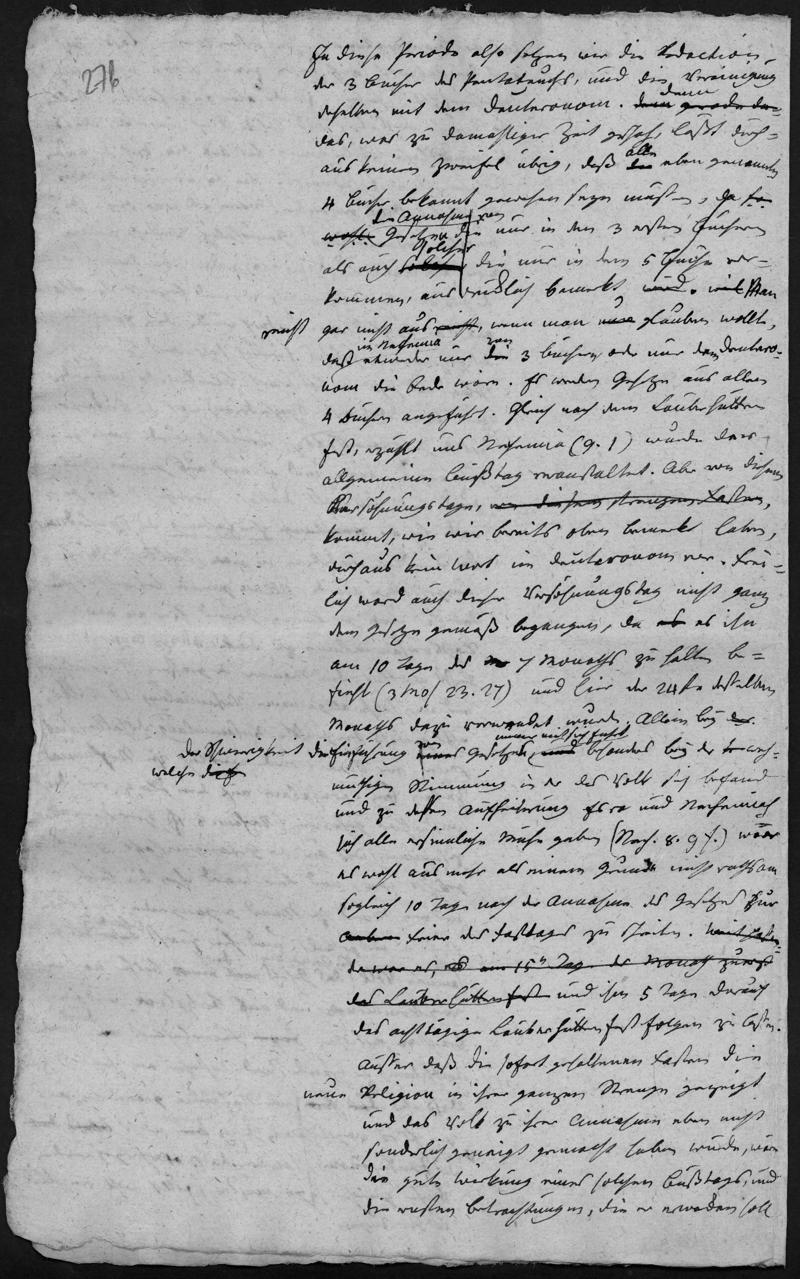 276
In diese Periode also setzen wir die Redaction
der 3 Bücher des Pentateuchs, und die Vereinigung
derselben mit dem Deuteronom. denn gerade
das, was zu damaliger Zeit geschah, läßt durch-
aus keinen Zweifel übrig, daß alle eben genannten
4 Bücher bekannt gewesen seyn müssen, da
die Annahme von
Gesetzen die nur in den 3 ersten Büchern
als auch solcher die nur in dem 5 Buche vor-
kommen, ausdrücklich bemerkt wird. Man
reicht
gar nicht aus, wenn man glauben wollte,
in Nehemia von
daß entweder nur die 3 Büchern oder nur dem Deutero-
nom die Rede wäre. Es werden Gesetze aus allen
4 Büchern angeführt. Gleich nach dem Lauberhütten
fest, erzählt uns Nehemia (9. 1) wurde der
allgemeine Bußtag veranstaltet. Aber von diesem
Versöhnungstage, von diesem strengen Fasten,
kommt, wie wir bereits oben bemerkt haben,
durchaus kein Wort im Deuteronom vor. Frei-
lich ward auch dieser Versöhnungstag nicht ganz
dem Gesetze gemäß begangen, da es ihn
am 10 Tage des 7 Monaths zu halten be-
fiehlt (3 Mos 23. 27) und hier der 24ste desselben
Monaths dazu verwendet wurde. Allein bey der
Der Schwierigkeit die Einführung neuer Gesetze,
welche
besonders bey der weh-
müthigen Stimmung in der das Volk sich befand
und zu dessen Aufheiterung Esra und Nehemias
sich alle ersinnliche Mühe gaben (Neh. 8. 9 f.) war
es wohl aus mehr als einem Grunde nicht rathsam
sogleich 10 Tage nach der Annahme des Gesetzes zur
Feier des Fasttages zu schreiten.
am 15n Tag des Monaths zuerst
das Lauberhüttenfest und ihm 5 Tage darauf
das achttägige Lauberhüttenfest folgen zu lassen.
Ausser daß die sofort gehaltenen Fasten die
neue
Religion in ihrer ganzen Strenge gezeigt
und das Volk zu ihrer Annahme eben nicht
sonderlich geneigt gemacht haben würde, wäre
die gute Wirkung eines solchen Bußtags, und
die ernsten Betrachtungen, die er erwecken soll